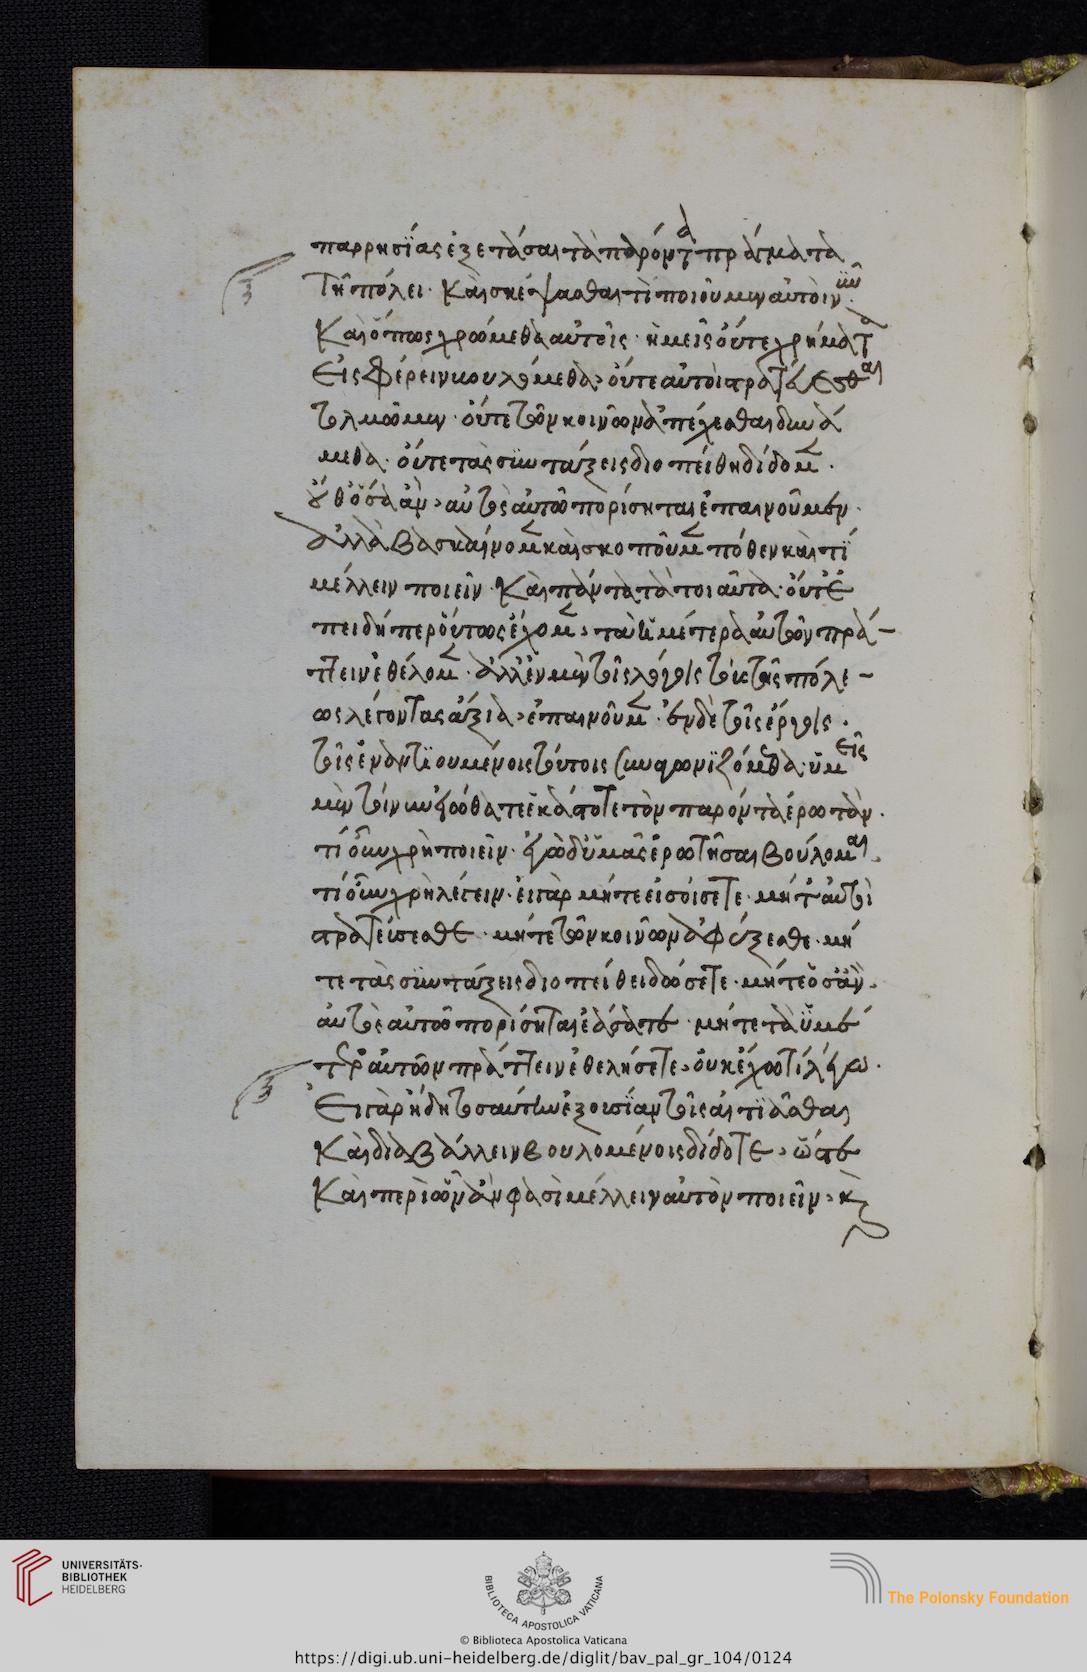 παρρησίας ἐξετάσαι τὰ παρόντα πράγματα
τῇ πόλει· καὶ σκέψασθαι τὶ ποιοῦμεν αὐτοὶ νυνῒ·
καὶ ὅπως χρώμεθα αὐτοῖς· ἡμεῖς οὔτε χρήματα
εἰσφέρειν βουλόμεθα, οὔτε αὐτοὶ στρατεύεσθαι
τολμῶμεν· οὔτε τῶν κοινῶν ἀπέχεσθαι δυνά
μεθα· οὔτε τὰς συντάξεις διοπείθη δίδομεν·
οὔθ ὅσα ἂν αὐτὸς αὐτῶ πορίσηται ἐπαινοῦμεν·
ἀλλὰ βασκαίνομεν καὶ σκοποῦμεν πόθεν καὶ τί
μέλλειν ποιεῖν· καὶ πάντα τὰ τοιαῦτα· οὔτ ἐ
πειδήπερ οὕτως ἔχομεν, τὰ ὑμέτερα αὐτῶν πρά-
ττειν ἐθέλομεν· ἀλλ ἐν μὲν τοῖς λόγοις τοὺς τῆς πόλε-
ως λέγοντας ἄξια, ἐπαινοῦμεν· ἐν δὲ τοῖς ἔργοις·
τοῖς ἐναντιουμένοις τούτοις συναγωνιζόμεθα· ὑμεῖς
μὲν τοίνυν εἰώθατε ἑκάστοτε τὸν παρόντα ἐρωτᾶν·
τί οὖν χρὴ ποιεῖν· ἐγὼ δ ὑμᾶς ἐρωτῆσαι βούλομαι·
τί οὖν χρὴ λέγειν· εἰ γὰρ μήτε εἰσοίσετε· μήτ αὐτοὶ
στρατεύσεσθε· μήτε τῶν κοινῶν ἀφέξεσθε· μή
τε τὰς συντάξεις διοπείθει δώσετε· μήτε ὅσ ἂν·
αὐτὸς αὐτῶ πορίσηται ἐάσετε· μήτε τὰ ὑμέ
τερ αὐτῶν πράττειν ἐθελήσετε, οὐκ ἔχω τί λέγω·
εἰ γὰρ ἤδη τοσαύτην ἐξουσίαν τοῖς αἰτιᾶσθαι
καὶ διαβάλλειν βουλομένοις δίδοτε, ὥστε
καὶ περὶ ὧν ἄν φασὶ μέλλειν αὐτὸν ποιεῖν, κὶ
UNIVERSITÄTS-
BIBLIOTHEK
HEIDELBERG
BIBLIOTECA APOSTOLICA VATICANA
The Polonsky Foundation
© Biblioteca Apostolica Vaticana
https://digi.ub.uni-heidelberg.de/diglit/bav_pal_gr_104/0124